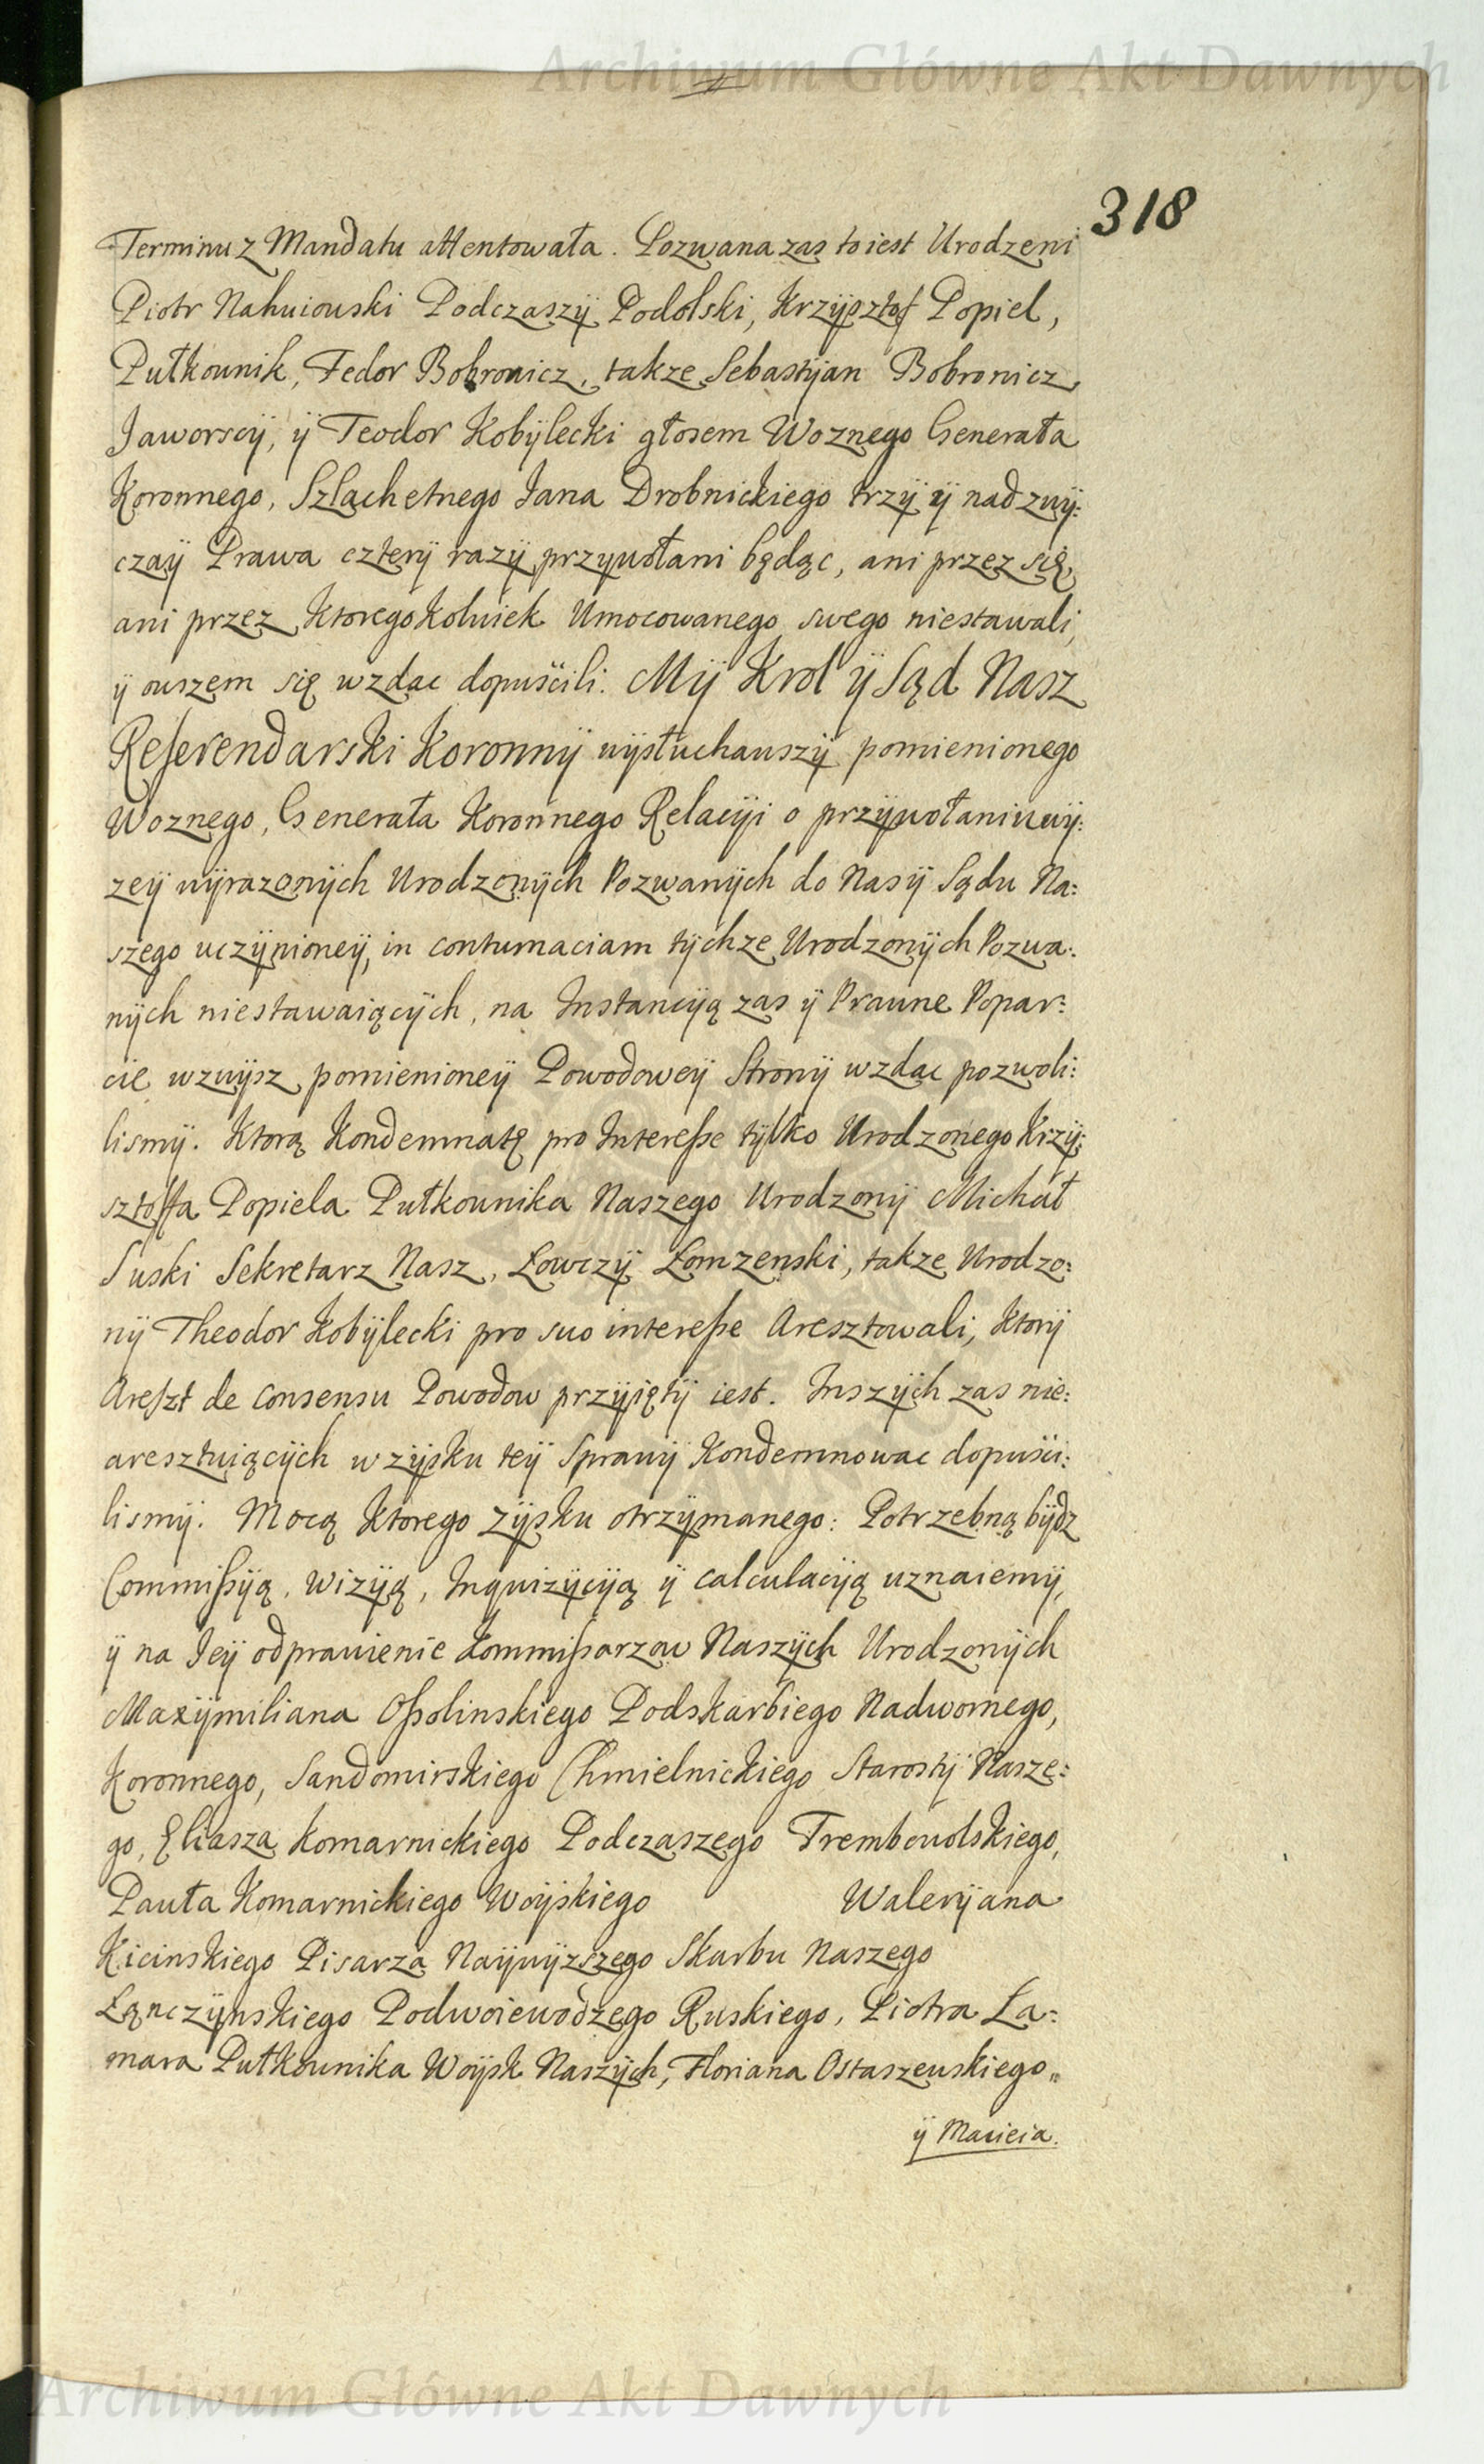 Archiwum Główne Akt Dawnych
318
Terminu z Mandatu attentowała. Pozwana zas to iest Urodzeni
Piotr Nahuiowski Podczaszÿ Podolski, Krzÿsztof Popiel,
Pułkownik, Fedor Bobronicz, takze Sebastÿan Bobronicz
Jaworscÿ, ÿ Teodor Kobÿlecki głosem Woznego Generała
Koronnego, Szlachetnego Jana Drobnickiego trzÿ ÿ nad zwÿ:
czaÿ Prawa czterÿ razÿ przÿwołani będąc, ani przez się,
ani przez ktoregokolwiek Umocowanego swego niestawali,
ÿ owszem się wzdac dopuścili. Mÿ Krol ÿ Sąd Nasz
Referendarski Koronnÿ wÿsłuchawszÿ pomienionego
Woznego, Generała Koronnego Relacÿi o przÿwołaniu wÿ:
zeÿ wÿrazonÿch Urodzonÿch Pozwanÿch do Nas ÿ Sądu Na:
szego uczÿnioneÿ, in contumaciam tÿchze Urodzonÿch Pozwa:
nÿch niestawaiącÿch, na Instancÿą zas ÿ Prawne Popar:
cie wzwÿsz pomienioneÿ Powodoweÿ Stronÿ wzdac pozwoli:
lismÿ. Ktorą Kondemnatę pro Interesse tÿlko Urodzonego Krzÿ:
sztoffa Popiela Pułkownika Naszego Urodzonÿ Michał
Suski Sekretarz Nasz, Łowczÿ Łomzenski, takze Urodzo:
nÿ Theodor Kobÿlecki pro suo interesse Aresztowali, Ktorÿ
Areszt de consensu Powodow przÿiętÿ iest. Inszÿch zas nie:
aresztuiącÿch w zÿsku teÿ Sprawÿ Kondemnowac dopuści:
lismÿ. Mocą Ktorego zÿsku otrzÿmanego: Potrzebną bÿdz
Commissÿą, Wizÿą, Inquizÿcÿą ÿ calculacÿą uznaiemÿ,
ÿ na Jeÿ odprawienie Kommissarzow Naszÿch Urodzonÿch
Maxÿmiliana Ossolinskiego Podskarbiego Nadwornego,
Koronnego, Sandomirskiego Chmielnickiego Starostÿ Nasze:
go, Eliasza Komarnickiego Podczaszego Trembowolskiego,
Pawła Komarnickiego Woÿskiego Walerÿana
Kicinskiego Pisarza Naÿwÿzszego Skarbu Naszego
Łączÿnskiego Podwoiewodzego Ruskiego, Piotra Ła:
mara Pułkownika Woÿsk Naszÿch, Floriana Ostaszewskiego
ÿ Macieia.
Archiwum Główne Akt Dawnych